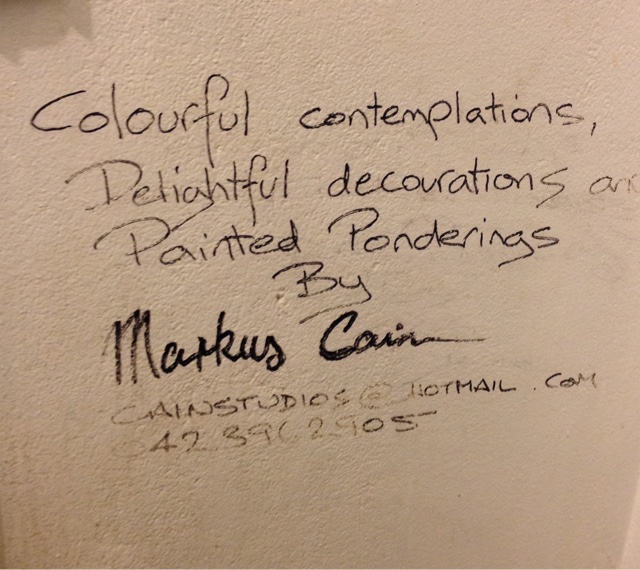 Colourful contemplations,
Delightful decourations
Painted Ponderings
By
Markus Cain
CAINSTUDIOS@HOTMAIL.COM